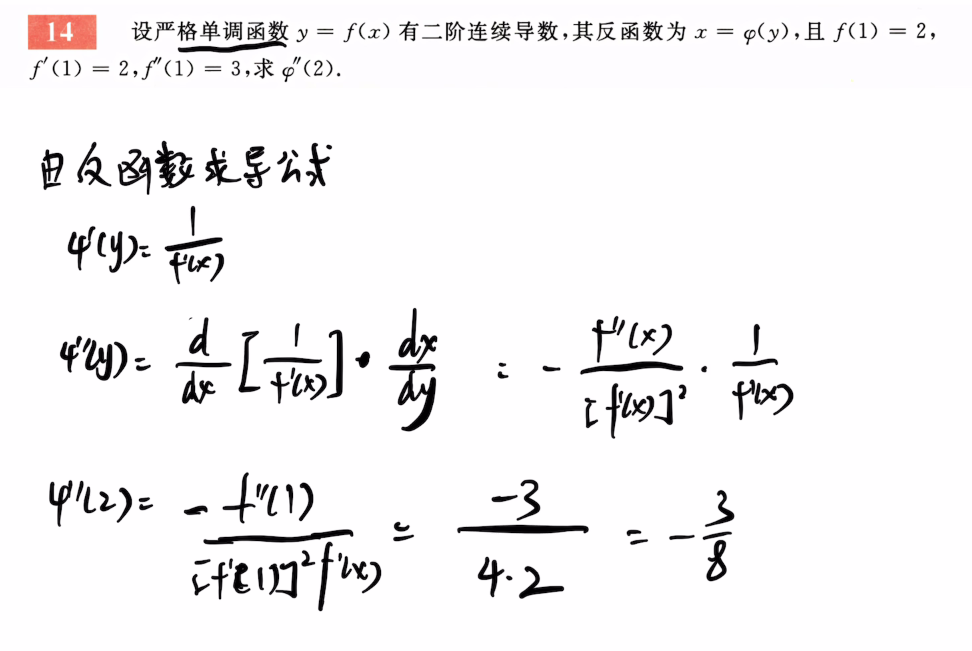 14 设严格单调函数 y = f(x) 有二阶连续导数,其反函数为 x = φ(y),且 f(1) = 2,
f′(1) = 2, f″(1) = 3,求 φ″(2).
由反函数求导公式
φ'(y) = 1/f'(x)
φ''(y) = d/dx [1/f'(x)] · dx/dy = - f''(x)/[f'(x)]² · 1/f'(x)
φ''(2) = -f''(1)/[f'(1)]² f'(x) = -3/4·2 = -3/8